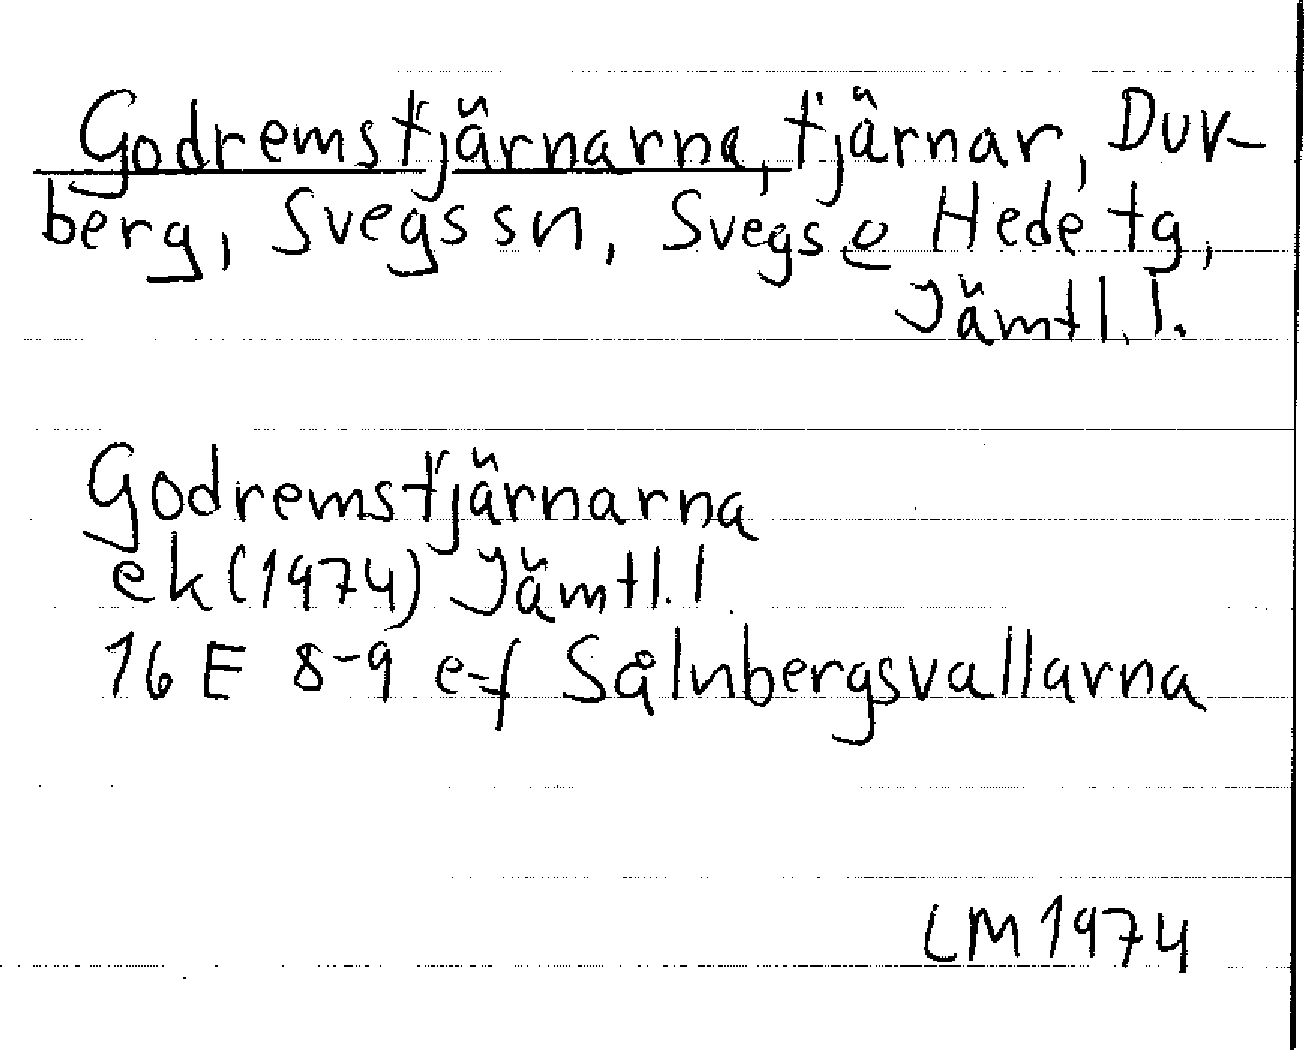 Godremstjärnarna, tjärnar, Duv-
berg, Svegs sn, Svegs o Hede tg,
Jämtl. l.
Godremstjärnarna
ek (1974) Jämtl. l
16 E 8-9 e-f Sålnbergsvallarna
LM 1974